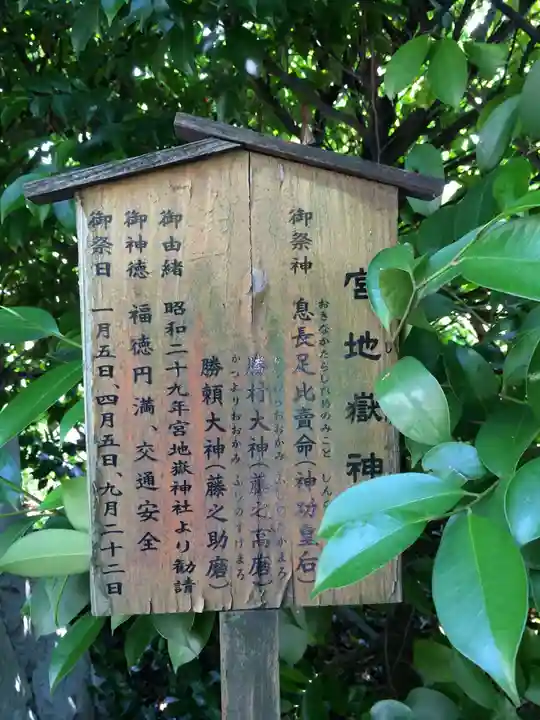 宮地嶽神
御祭神 息長足比賣命(神功皇后)
おきながたらしひめのみこと
勝村大神(藤之高麿)
勝頼大神(藤之助麿)
かつよりおおかみ ふじのすけまろ
御由緒 昭和二十九年宮地嶽神社より勧請
御神徳 福徳円満、交通安全
御祭日 一月五日、四月五日、九月二十二日